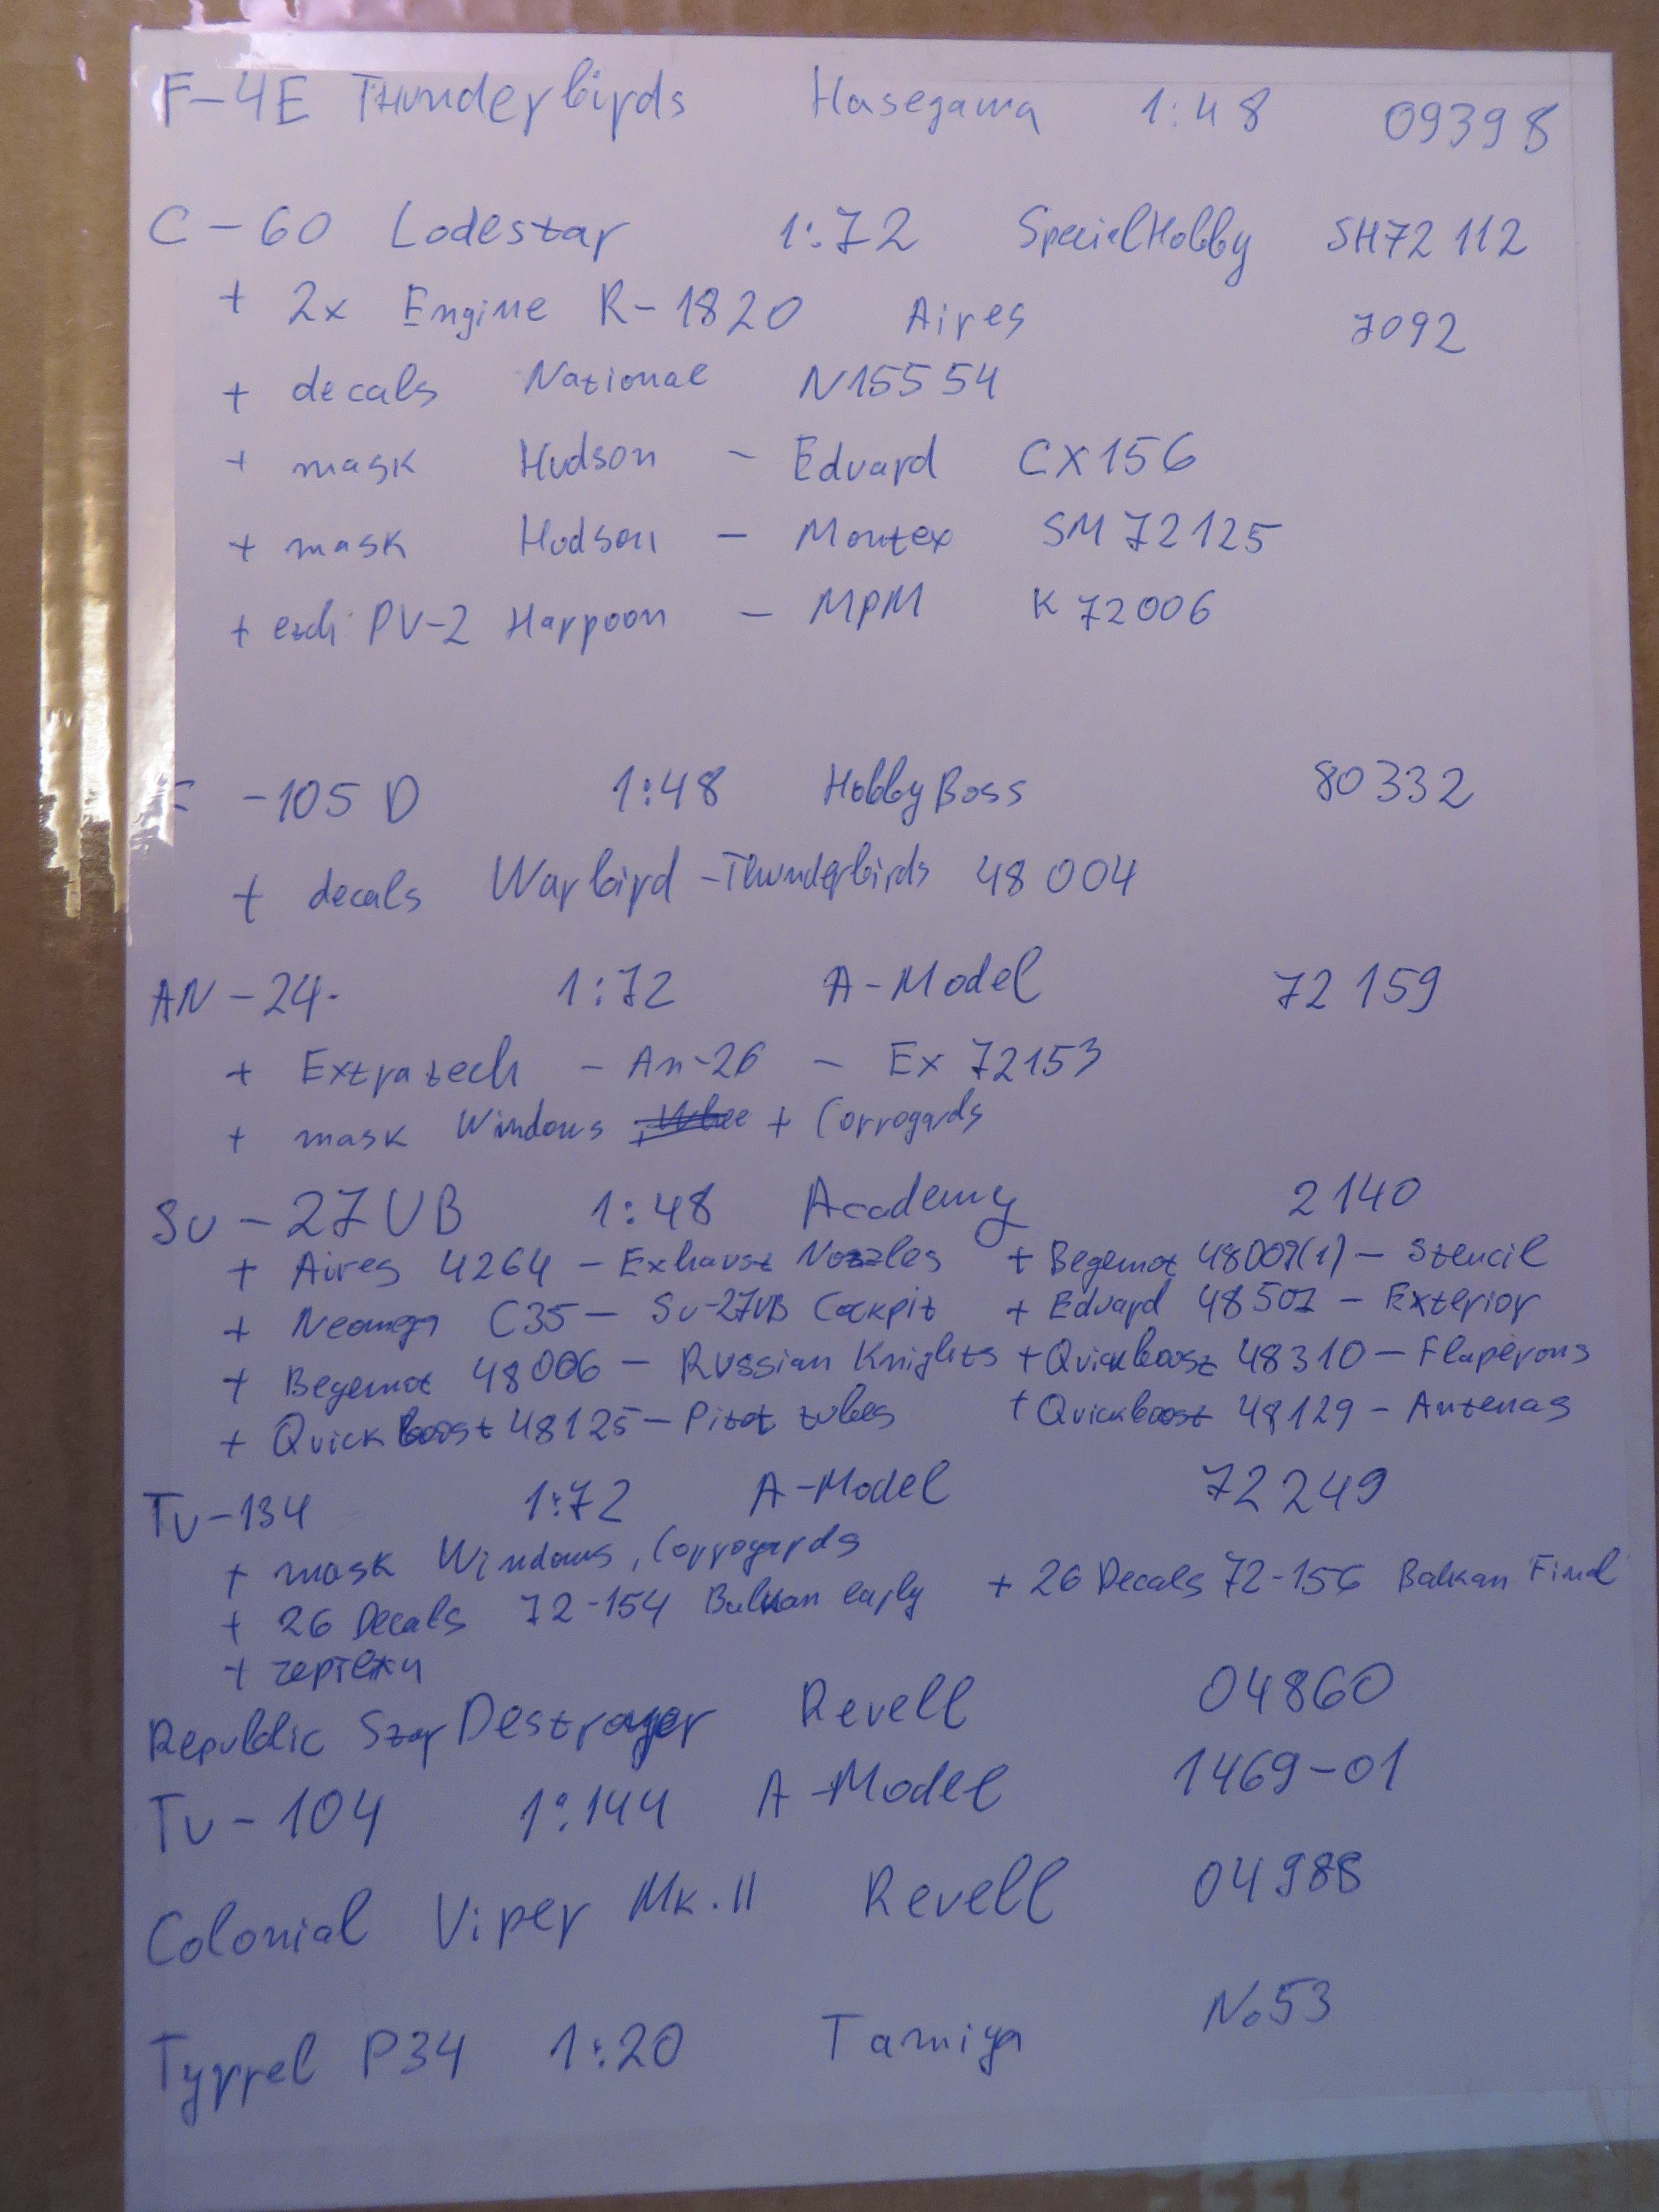 F-4E Thunderbirds Hasegawa 1:48 09398
C-60 Lodestar 1:72 SpecialHobby SH72112
+ 2x Engine R-1820 Aires 7092
+ decals National N15554
+ mask Hudson - Eduard CX156
+ mask Hudson - Montex SM72125
+ PV-2 Harpoon - MPM K72006
-105D 1:48 HobbyBoss 80332
+ decals Warbird - Thunderbirds 48004
AN-24 1:72 A-Model 72159
+ Extratech - An-26 - Ex 72153
+ mask Windows + Corrogards
Su-27UB 1:48 Academy 2140
+ Aires 4264 - Exhaust Nozzles + Begemot - Stencil
+ Neomega C35 - Su-27UB Cockpit + Eduard 48507 - Exterior
+ Begemot 48006 - Russian Knights + Quickboost 48310 - Flaperons
+ Quickboost 48125 - Pitot tubes + Quickboost 48129 - Antenas
Tu-134 1:72 A-Model 72249
+ mask Windows, Corrogards
+ 26 Decals 72-154 Balkan early + 26 Decals 72-156 Balkan Final
+ чертежи
Republic Star Destroyer Revell 04860
Tu-104 1:144 A-Model 1469-01
Colonial Viper Mk.II Revell 04988
Tyrrel P34 1:20 Tamiya No53